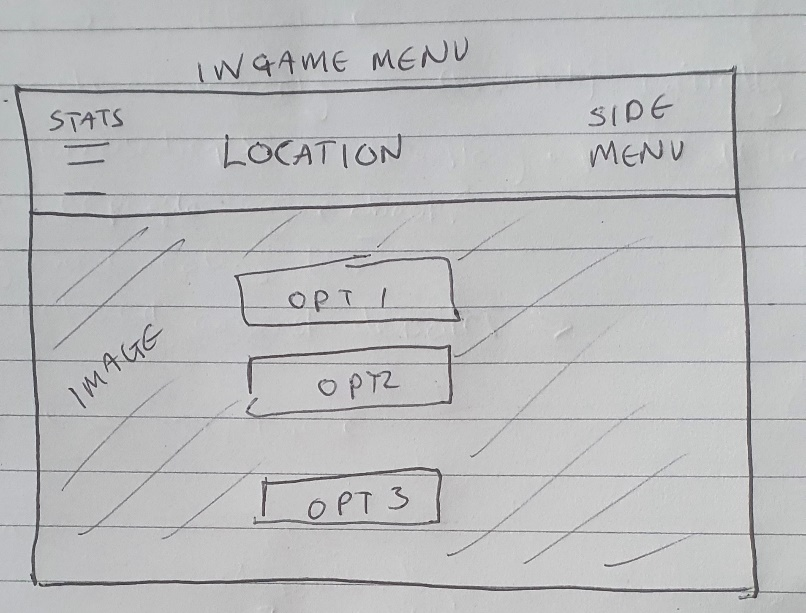 INGAME MENU
STATS
LOCATION
SIDE
MENU
OPT 1
IMAGE
OPT2
OPT 3